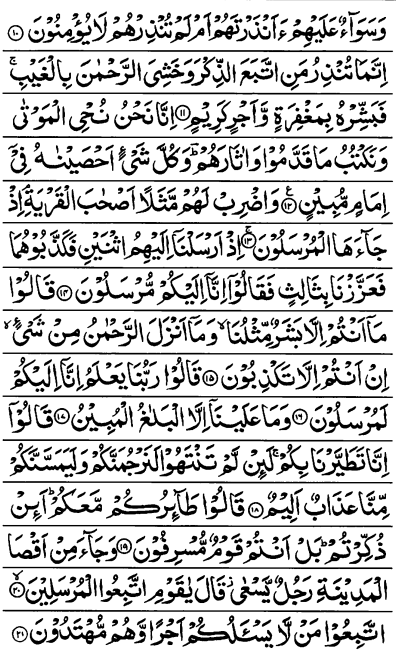 وَسَوَآءٌ عَلَيْهِمْ ءَاَنْذَرْتَهُمْ اَمْ لَمْ تُنْذِرْهُمْ لَا يُؤْمِنُوْنَ ۝۱۰
اِنَّمَا تُنْذِرُ مَنِ اتَّبَعَ الذِّكْرَ وَخَشِيَ الرَّحْمٰنَ بِالْغَيْبِ ۚ
فَبَشِّرْهُ بِمَغْفِرَةٍ وَّاَجْرٍ كَرِيْمٍ ۝۱۱ اِنَّا نَحْنُ نُحْيِ الْمَوْتٰى
وَنَكْتُبُ مَا قَدَّمُوْا وَاٰثَارَهُمْ ؕ وَكُلَّ شَيْءٍ اَحْصَيْنٰهُ فِيْٓ
اِمَامٍ مُّبِيْنٍ ۝۱۲ وَاضْرِبْ لَهُمْ مَّثَلًا اَصْحٰبَ الْقَرْيَةِ ۘ اِذْ
جَآءَهَا الْمُرْسَلُوْنَ ۝۱۳ اِذْ اَرْسَلْنَآ اِلَيْهِمُ اثْنَيْنِ فَكَذَّبُوْهُمَا
فَعَزَّزْنَا بِثَالِثٍ فَقَالُوْٓا اِنَّآ اِلَيْكُمْ مُّرْسَلُوْنَ ۝۱۴ قَالُوْا
مَآ اَنْتُمْ اِلَّا بَشَرٌ مِّثْلُنَا ۙ وَمَآ اَنْزَلَ الرَّحْمٰنُ مِنْ شَيْءٍ ۙ
اِنْ اَنْتُمْ اِلَّا تَكْذِبُوْنَ ۝۱۵ قَالُوْا رَبُّنَا يَعْلَمُ اِنَّآ اِلَيْكُمْ
لَمُرْسَلُوْنَ ۝۱۶ وَمَا عَلَيْنَآ اِلَّا الْبَلٰغُ الْمُبِيْنُ ۝۱۷ قَالُوْٓا
اِنَّا تَطَيَّرْنَا بِكُمْ ۚ لَئِنْ لَّمْ تَنْتَهُوْا لَنَرْجُمَنَّكُمْ وَلَيَمَسَّنَّكُمْ
مِّنَّا عَذَابٌ اَلِيْمٌ ۝۱۸ قَالُوْا طَآئِرُكُمْ مَّعَكُمْ ؕ اَئِنْ
ذُكِّرْتُمْ ؕ بَلْ اَنْتُمْ قَوْمٌ مُّسْرِفُوْنَ ۝۱۹ وَجَآءَ مِنْ اَقْصَا
الْمَدِيْنَةِ رَجُلٌ يَّسْعٰى ۡ قَالَ يٰقَوْمِ اتَّبِعُوا الْمُرْسَلِيْنَ ۝۲۰ ۙ
اتَّبِعُوْا مَنْ لَّا يَسْـَٔلُكُمْ اَجْرًا وَّهُمْ مُّهْتَدُوْنَ ۝۲۱